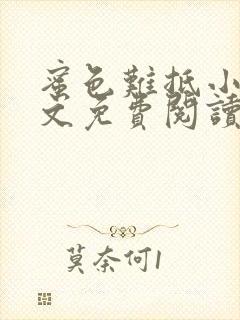 蜜色難抵小
文免費閱讀
莫奈何1